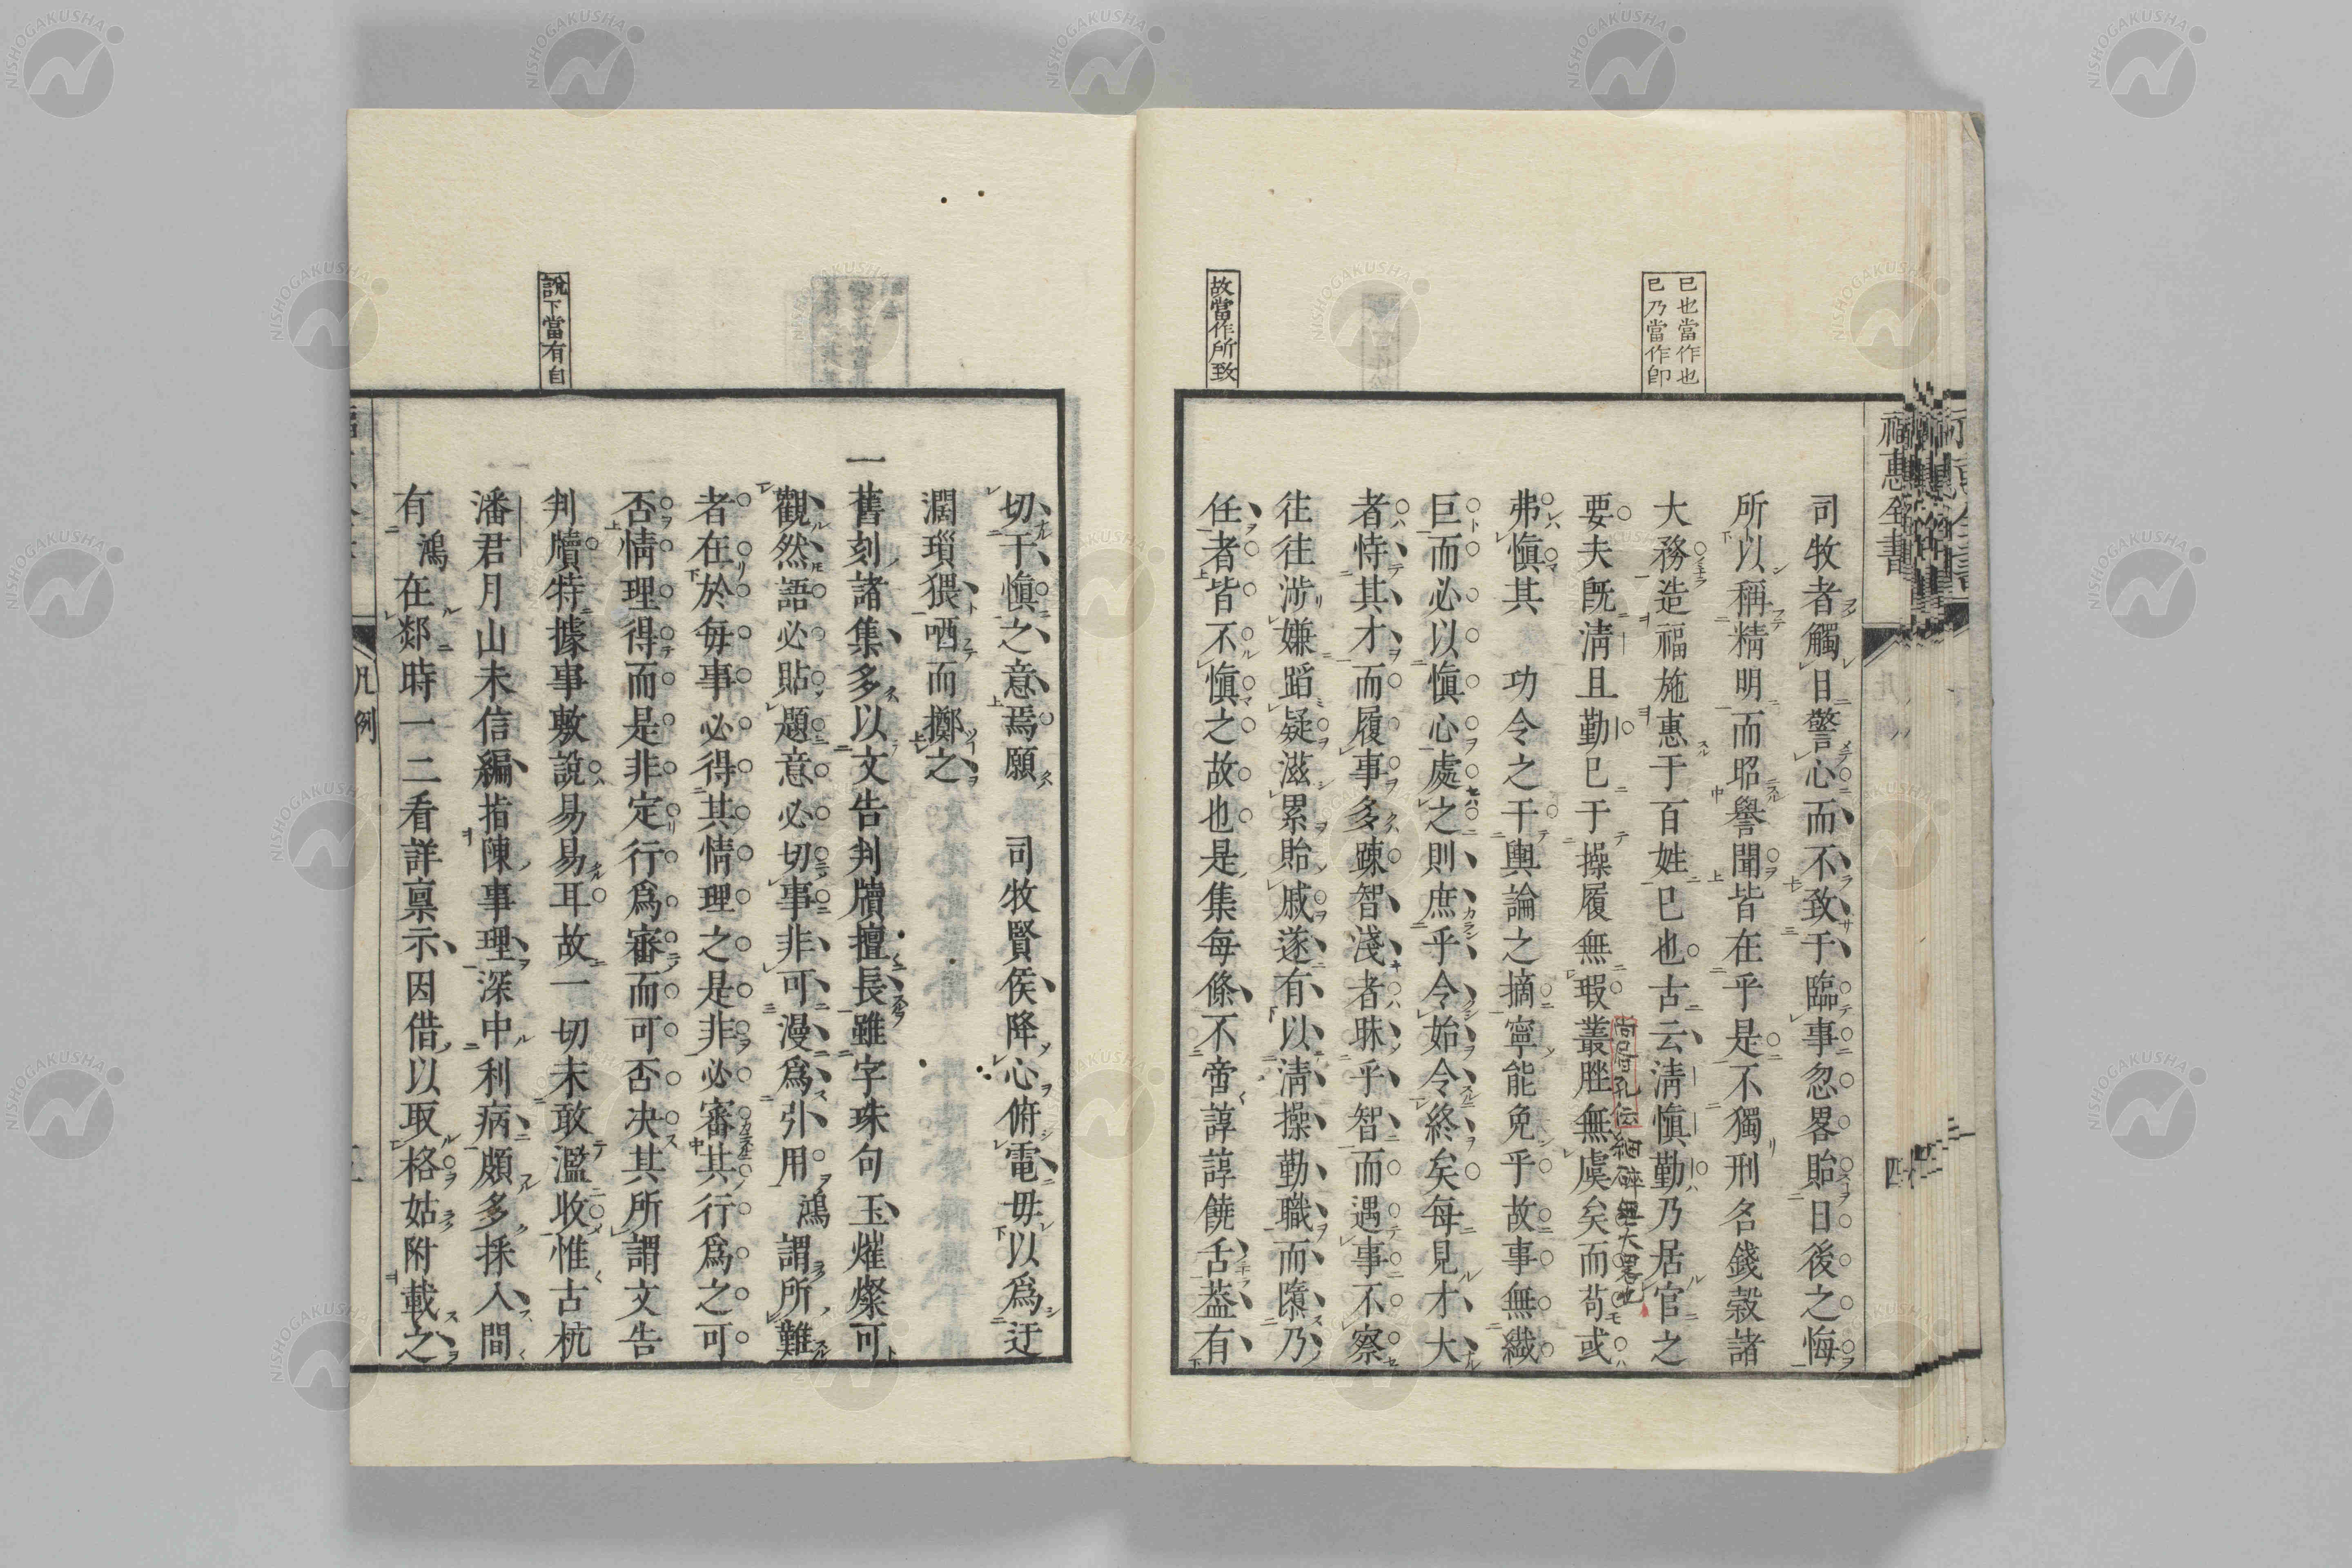 福惠全書
凡例
四
巳也當作也
巳乃當作卽
司牧者觸目警心而不致于臨事忽畧貽日後之悔
所以稱精明而昭譽聞皆在乎是不獨刑名錢穀諸
大務造福施惠于百姓巳也古云清慎勤乃居官之
要夫既清且勤巳于操履無瑕叢脞無虞矣而苟或
尚書孔伝細碎無大畧也
弗慎其　功令之干輿論之摘寧能免乎故事無纎
巨而必以慎心處之則庶乎令始令終矣每見才大
者恃其才而履事多踈智淺者昧乎智而遇事不察
往往涉嫌蹈疑滋累貽戚遂有以清操勤職而隳乃
故當作所致
任者皆不慎之故也是集每條不啻諄諄饒舌葢有
切于慎之意焉願　司牧賢侯降心俯電毋以爲迂
濶瑣猥哂而擲之
一舊刻諸集多以文告判牘擅長雖字珠句玉燿燦可
觀然語必貼題意必切事非可漫爲引用鴻謂所難
者在於每事必得其情理之是非必審其行爲之可
否情理得而是非定行爲審而可否决其所謂文告
說下當有自
判牘特據事敷說易易耳故一切未敢濫收惟古杭
潘君月山未信編指陳事理深中利病頗多採入間
有鴻在郯時一二看詳稟示因借以取格姑附載之
凡例